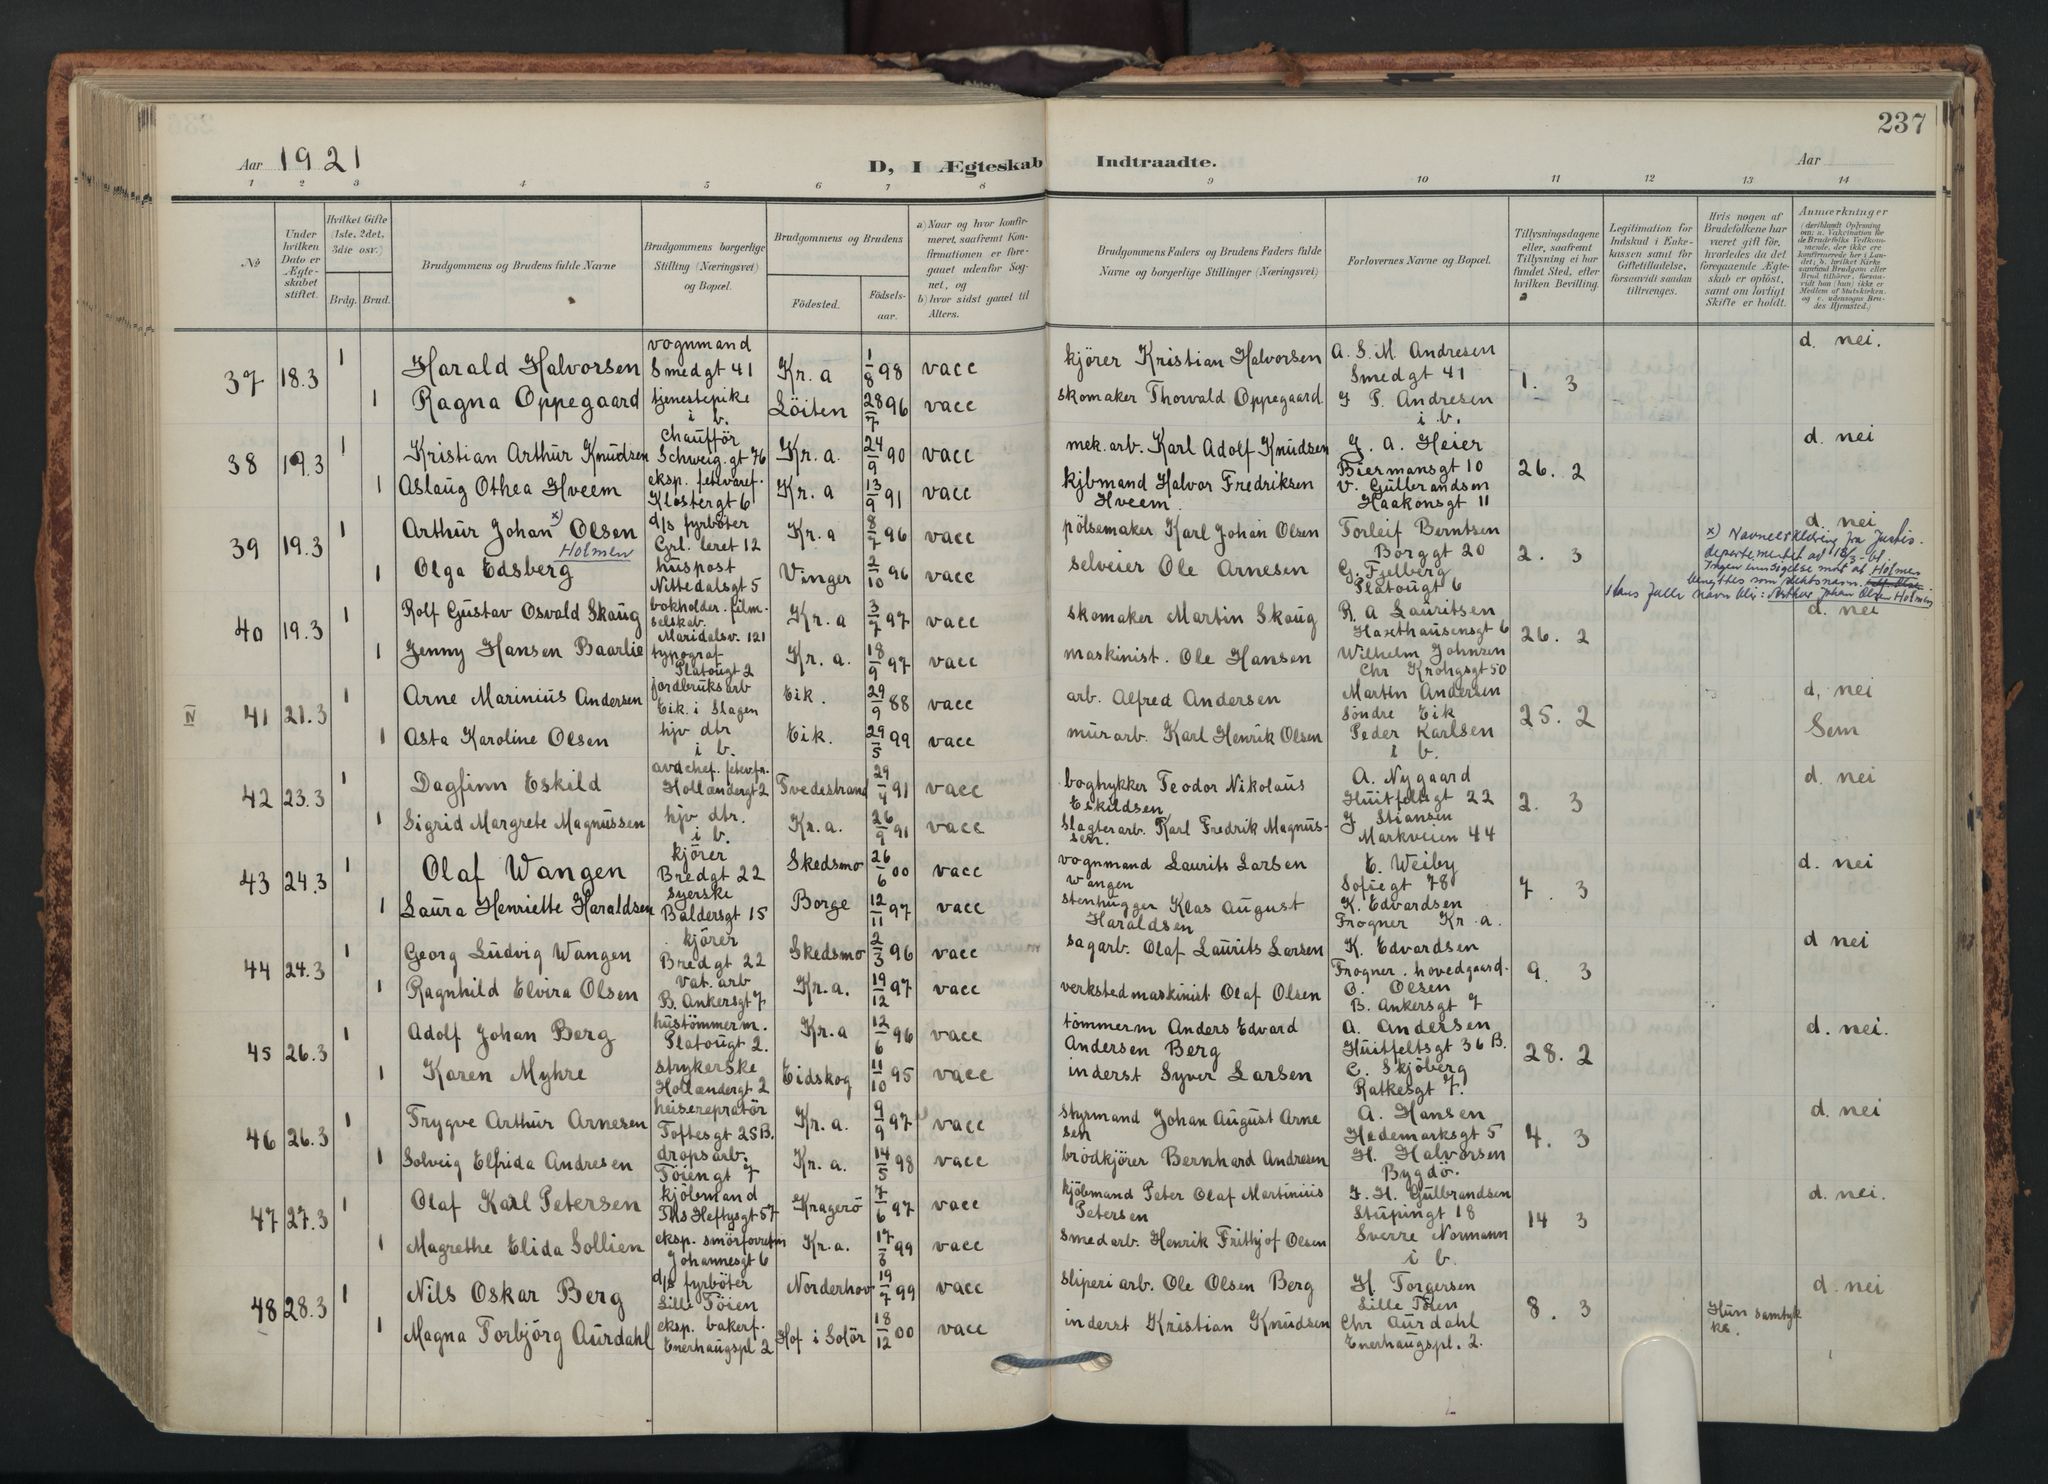 237
Aar 1921
D, I Ægteskab Indtraadte.
Aar
1 2 3 4 5 6 7 8 9 10 11 12 13 14
No
Under hvilken Dato er Ægteskabet stiftet.
Hvilket Gifte (1ste, 2det, 3die osv.)
Brdg. Brud.
Brudgommens og Brudens fulde Navne
Brudgommens borgerlige Stilling (Næringsvei) og Bopæl.
Brudgommens og Brudens
Födested. Födsels-aar.
a) Naar og hvor konfirmeret, saafremt Konfirmationen er foregaaet udenfor Sognet, og
b) hvor sidst gaaet til Alters.
Brudgommens Faders og Brudens Faders fulde Navne og borgerlige Stillinger (Næringsvei)
Forlovernes Navne og Bopæl.
Tillysningsdagene eller, saafremt Tillysning ei har fundet Sted, efter hvilken Bevilling.
Legitimation for Indskud i Enkekassen samt for Giftetilladelse, forsaavidt saadan tiltrænges.
Hvis nogen af Brudefolkene har været gift för, hvorledes da det foregaaende Ægteskab er oplöst, samt om lovligt Skifte er holdt.
Anmærkninger
(deriblandt Oplysning om: a. Vakcination for de Brudefolks Vedkommende, der ikke ere konfirmerede her i Landet; b. hvilket Kirkesamfund Brudgom eller Brud tilhörer, forsaavidt han (hun) ikke er Medlem af Statskirken, og c. udensogns Brudes Hjemsted.)
37 18.3 1 Harald Halvorsen vognmand Smedgt 41 Kr.a 1/8 98 vacc kjörer Kristian Halvorsen A. S. M. Andresen Smedgt 41 1. 3 d. nei.
1 Ragna Oppegaard tjenestepike i b. Löiten 28/7 96 vacc skomaker Thorvald Oppegaard J P. Andresen i b.
38 19.3 1 Kristian Arthur Knudsen Chaufför Schweig.gt 76 Kr.a. 24/9 90 vacc mek.arb. Karl Adolf Knudsen G. A. Heier Biermansgt 10 26. 2 d. nei
1 Aslaug Othea Hveem eksp. fetevaref. Klostergt 6 Kr.a 13/9 91 vacc kjbmand Halvor Fredriksen Hveem. V. Gulbrandsen Haakonsgt 11
39 19.3 1 Arthur Johan x) Olsen Holmen d/s fyrböter Grl. leret 12 Kr.a 8/7 96 vacc pölsemaker Karl Johan Olsen Torleif Berntsen Borggt 20 2. 3 d. nei
x) Navneerklæring fra Justisdepartementet av 18/3-21. Ingen innsigelse mot at Holmen benyttes som slektsnavn. Hans fulle navn blir: Arthur Johan Olsen Holmen
1 Olga Edsberg huspost Nittedalsgt 5 Vinger 2/10 96 vacc selveier Ole Arnesen G. Fjelberg Platougt 6
40 19.3 1 Rolf Gustav Osvald Skaug bokholder. filmselskab. Maridalsv. 121 Kr.a 3/7 97 vacc skomaker Martin Skaug R. A Lauritsen Haxthausensgt 6 26. 2 d. nei
1 Jenny Hansen Baarlie typograf Platougt 2 Kr.a. 18/9 97 vacc maskinist. Ole Hansen Wilhelm Johnsen Chr Krohgsgt 50
IV 41 21.3 1 Arne Marinius Andersen jordbruksarb Eik. i Slagen Eik. 29/9 88 vacc arb. Alfred Andersen Martin Andersen Söndre Eik 25. 2 d, nei
1 Asta Karoline Olsen hjv dtr i b. Eik. 29/5 99 vacc murarb. Karl Henrik Olsen Peder Karlsen i b. Sem
42 23.3 1 Dagfinn Eskild avdchef. fetevfr. Hollændergt 2 Tvedestrand 29/4 91 vacc boghykker Teodor Nikolaus Eskildsen A. Nygaard Huitfeltsgt 22 2. 3 d. nei
1 Sigrid Margrete Magnussen hjv dtr. i b. Kr.a. 26/9 91 vacc Slagterarb. Karl Fredrik Magnussen. J Stiansen Markveien 44
43 24.3 1 Olaf Wangen kjörer Bredgt 22 Skedsmo 26/6 00 vacc vognmand Laurits Larsen Wangen E. Weiby Sofiegt 78 7. 3 d. nei
1 Laura Henriette Haraldsen syerske Baldersgt 15 Borge 12/11 97 vacc stenhugger Klas August Haraldsen K. Edvardsen Frogner Kr.a.
44 24.3 1 Georg Ludvig Wangen kjörer Bredgt 22 Skedsmo 2/3 96 vacc sagarb. Olaf Laurits Larsen K. Edvardsen Frogner. hovedgaard. 9. 3 d nei
1 Ragnhild Elvira Olsen vat. arb B. Ankersgt 7 Kr.a. 19/12 97 vacc verkstedmaskinist Olaf Olsen O. Olsen B. Ankersgt 7
45 26.3 1 Adolf Johan Berg hustömmerm. Platougt 2. Kr.a 12/6 96 vacc tömmerm Anders Edvard Andersen Berg A. Andersen Huitfeltsgt 36 B. 28. 2 d. nei.
1 Karen Myhre strykerske Hollændergt 2 Eidskog 11/10 95 vacc inderst Syver Larsen C. Skjöberg Ratkesgt 7.
46 26.3 1 Trygve Arthur Arnesen heiserepratör Toftesgt 25B. Kr.a. 9/9 97 vacc styrmand Johan August Arnesen A. Hansen Hedemarksgt 5 4. 3 d. nei
1 Solveig Elfrida Andresen dropsarb. Töiengt 7 Kr.a. 14/5 98 vacc brödkjörer Bernhard Andresen H. Halvorsen Bygdö.
47 27.3 1 Olaf Karl Petersen kjöbmand Ths Heftysgt 57 Kragerö 7/6 97 vacc kjöbmand Peter Olaf Martinius Petersen J. H. Gulbrandsen Stupingt 18 14 3 d. nei.
1 Magrethe Elida Sollien eksp. smörforretn Johannesgt 6 Kr.a. 17/3 99 vacc smedarb. Henrik Frithjof Olsen Sverre Normann i b.
48 28.3 1 Nils Oskar Berg d/s fyrböter Lille Töien Norderhov 19/7 99 vacc sliperiarb. Ole Olsen Berg H. Torgersen Lille Töien 8. 3 d. nei
1 Magna Torbjörg Aurdahl eksp. bakerf. Enerhaugspl 2 Hof i Solör 18/12 00 vacc inderst Kristian Knudsen Chr Aurdahl Enerhaugspl. 2. Hun samtykke.